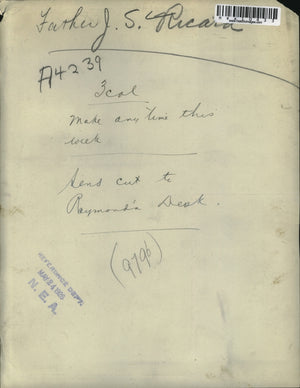 Father J. S. Ricard
A4239
3 col
Make any time this
week
Send cut to
Raymond's Desk.
(979b)
REFERENCE DEPT.
MAY 24 1929
N. E. A.